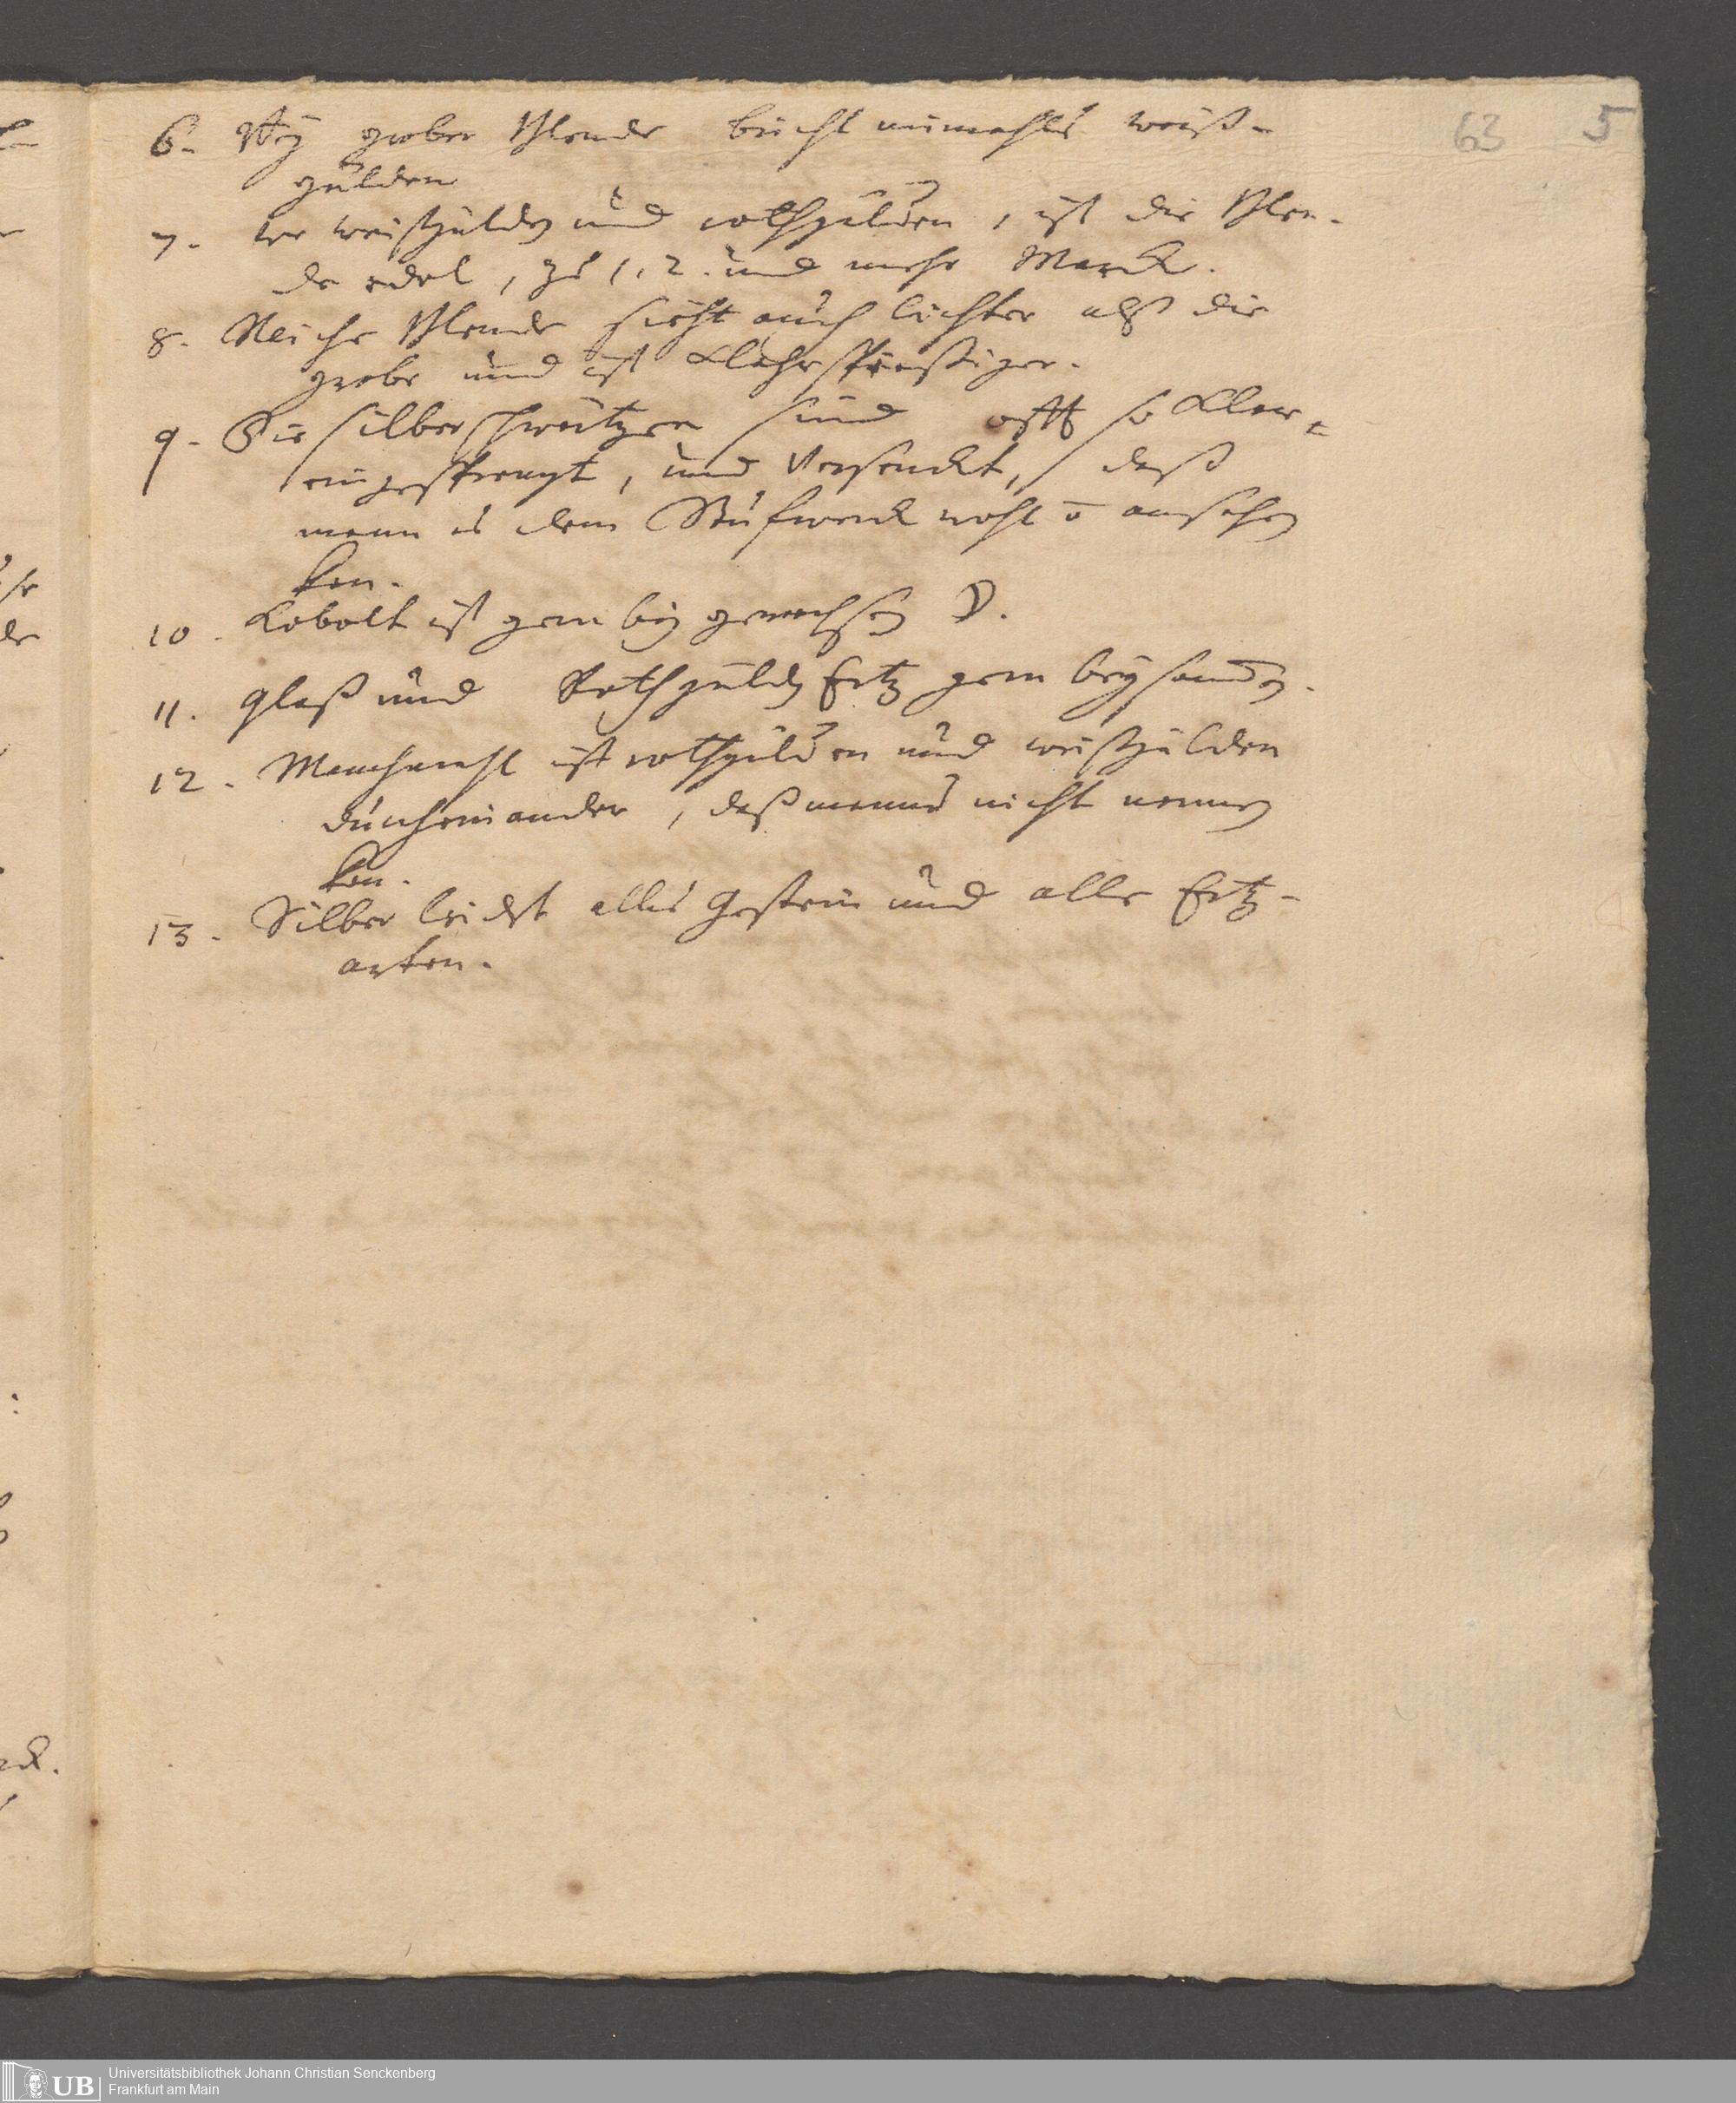 63 5
6. Bey grober Blende bricht niemahls weiß-
gülden
7. wo weisgülden und rothgülden, ist die Blen-
de edel, zu 1. 2. und mehr Marck.
8. Reiche Blende sieht auch lichter alß die
grobe und ist klahrspeisiger.
9. Die silberschwärtzen sind offt so klar
eingesprengt, und versenckt, daß
mann es dem Stufwerck nicht ansehen
kan.
10. Kobolt ist gern bey gewachsen ☽.
11. Glaß und Rothgülden Ertz gern beysammen.
12. Manchmahl ist rothgülden und weisgülden
durcheinander, daß manns nicht nennen
kan.
13. Silber leidet alles Gestein und alle Ertz-
arten.
UB
Universitätsbibliothek Johann Christian Senckenberg
Frankfurt am Main